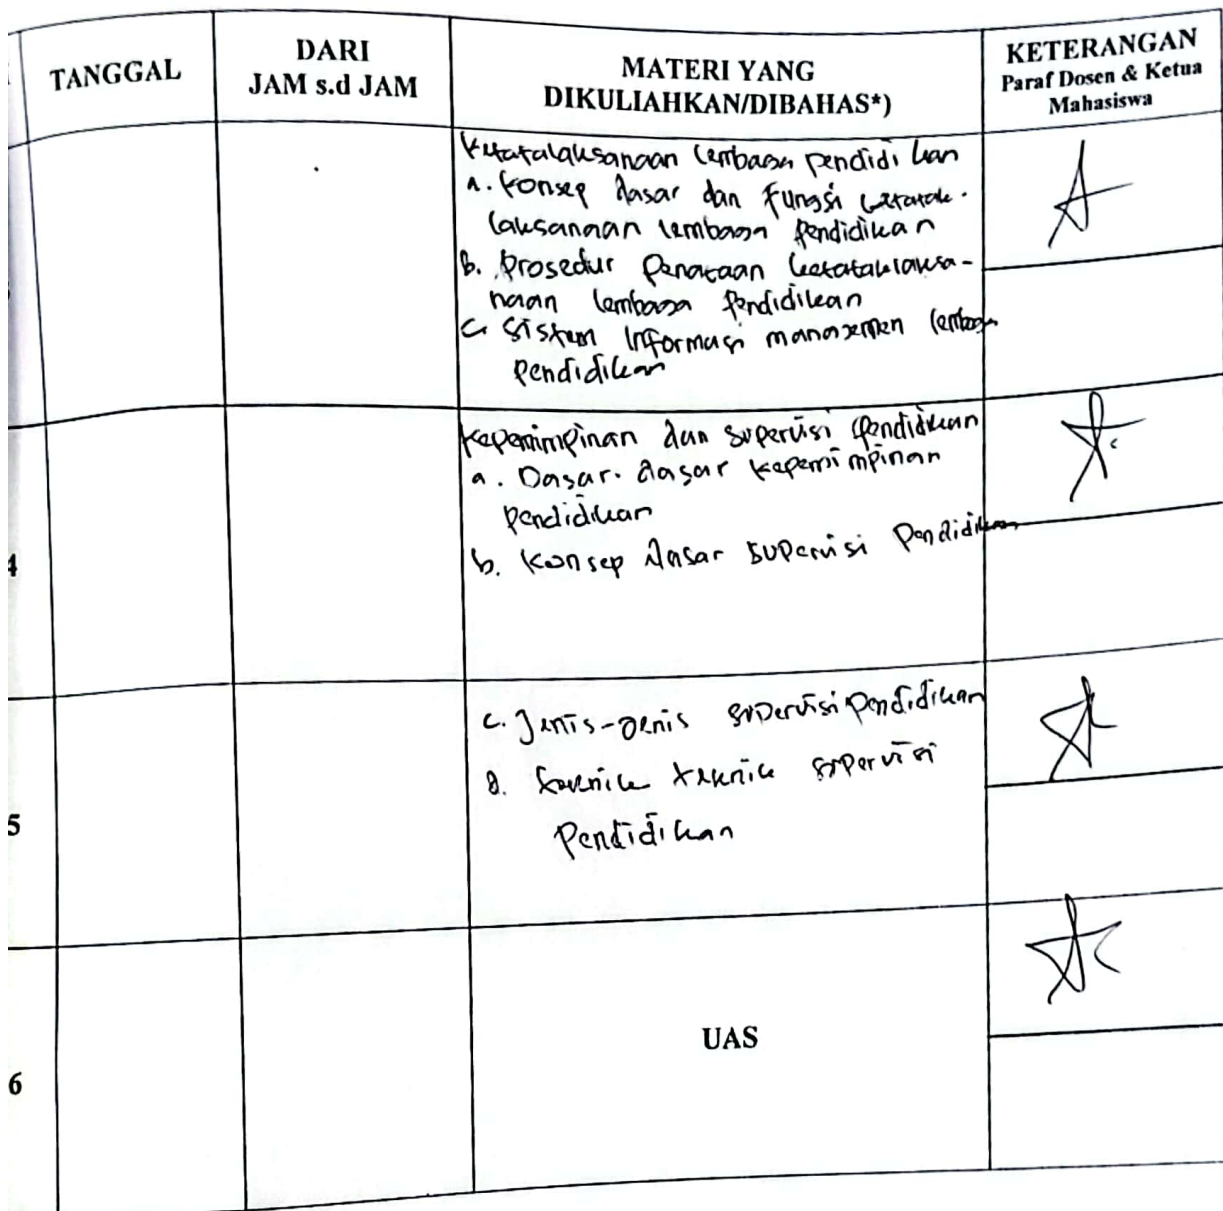 TANGGAL
DARI
JAM s.d JAM
MATERI YANG
DIKULIAHKAN/DIBAHAS*)
KETERANGAN
Paraf Dosen & Ketua
Mahasiswa
Ketatalaksanaan lembaga pendidikan
a. Konsep dasar dan fungsi ketatak-
laksanaan lembaga pendidikan
b. Prosedur penataan ketataklaksa-
naan lembaga pendidikan
c. Sistem informasi manajemen lembaga
pendidikan
4
Kepemimpinan dan supervisi pendidikan
a. Dasar-dasar kepemimpinan
pendidikan
b. Konsep dasar supervisi pendidikan
5
c. Jenis-jenis supervisi pendidikan
d. teknik teknik supervisi
pendidikan
6
UAS